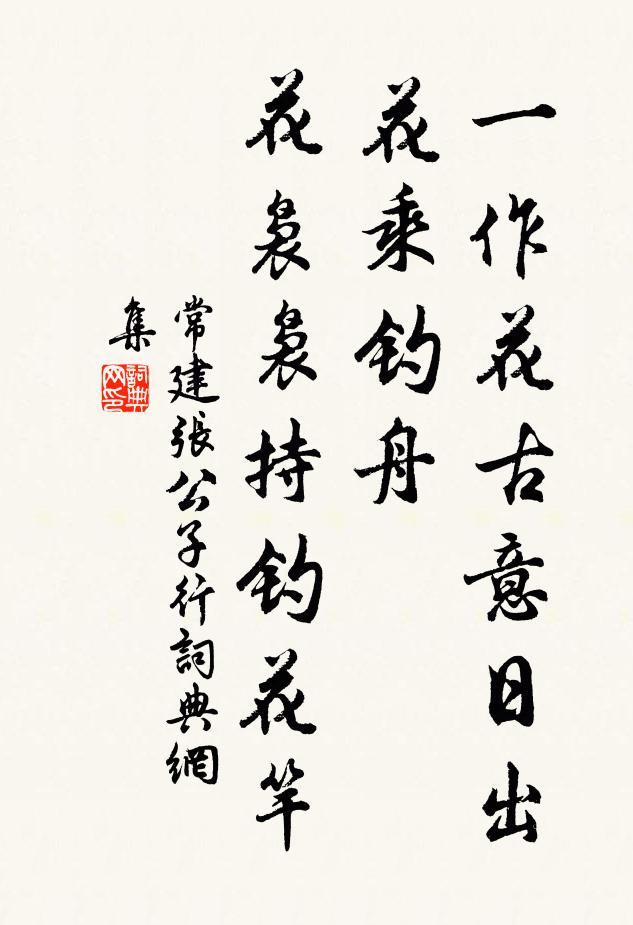 一作花古意日出
花乘钓舟
花袅袅持钓花竿
常建張公子行詞典網
集
詞典
网印